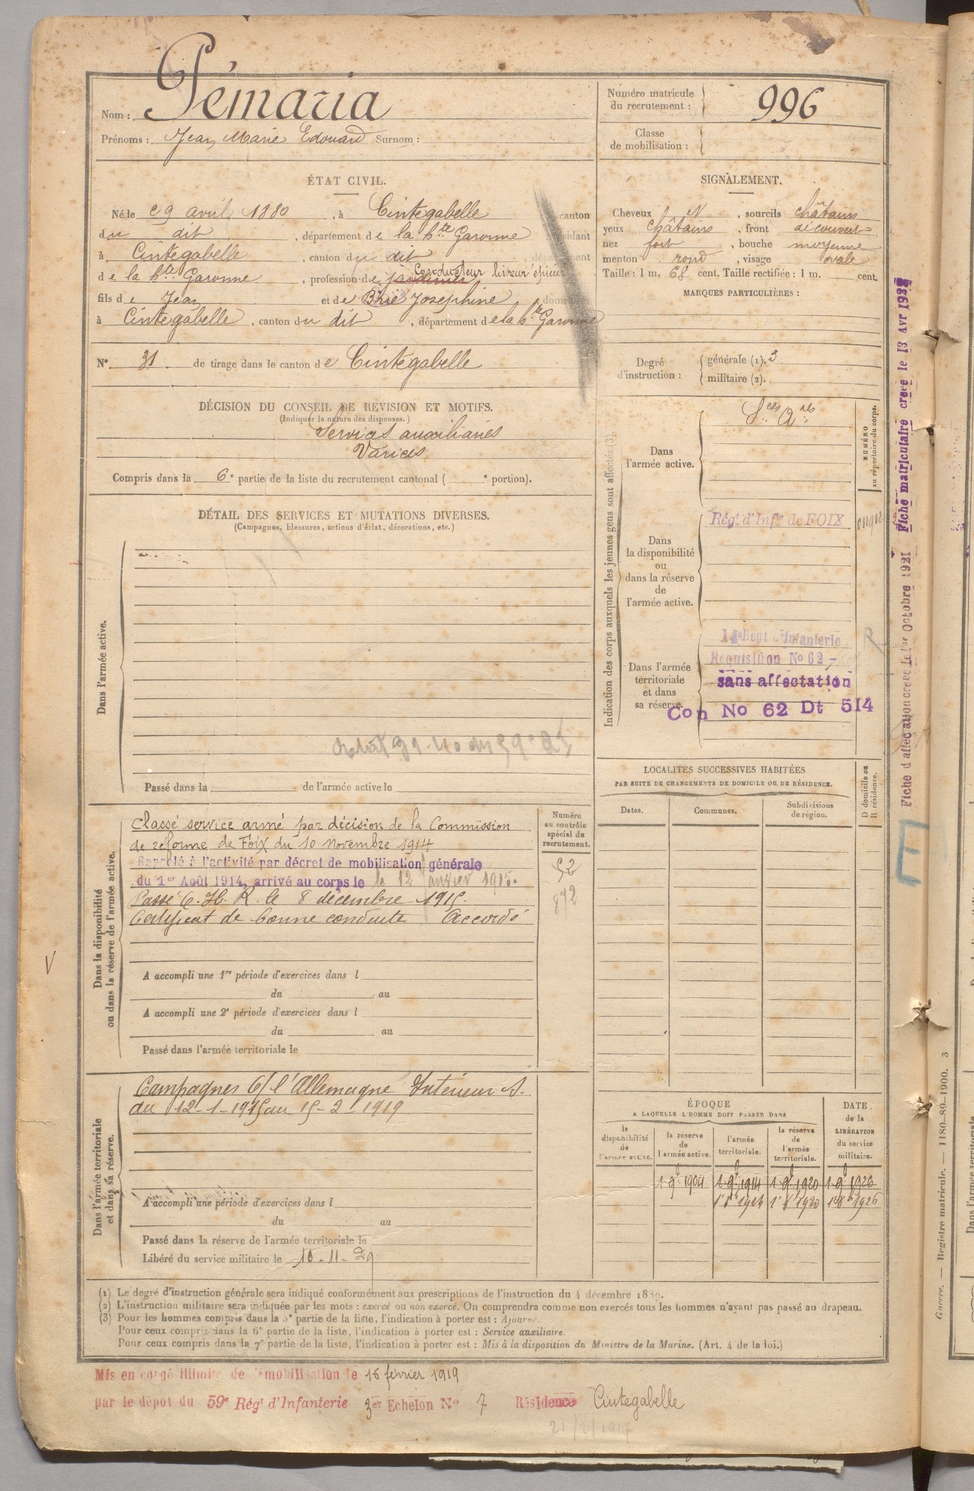 Nom : Pémaria
Prénoms : Jean Marie Edouard Surnom :
Numéro matricule du recrutement : 996
Classe de mobilisation :
ÉTAT CIVIL.
Né le 29 avril 1880, à Cintegabelle canton
du dit, département de la Hte Garonne résidant
à Cintegabelle, canton du dit département
de la Hte Garonne, profession de Conducteur livreur épicier
fils de Jean et de Brie Josephine
à Cintegabelle, canton du dit, département de la Hte Garonne
N° 31 de tirage dans le canton de Cintegabelle
SIGNALEMENT.
Cheveux et, sourcils châtains
yeux châtains, front découvert
nez fort, bouche moyenne
menton rond, visage ovale
Taille : 1 m. 68 cent. Taille rectifiée : 1 m. cent.
MARQUES PARTICULIÈRES :
Degré d'instruction : générale (1). 3
militaire (2).
DÉCISION DU CONSEIL DE REVISION ET MOTIFS.
(Indiquer la nature des dispenses.)
Services auxiliaires
Varices
Compris dans la 6e partie de la liste du recrutement cantonal ( e portion).
DÉTAIL DES SERVICES ET MUTATIONS DIVERSES.
(Campagnes, blessures, actions d'éclat, décorations, etc.)
Dans l'armée active.
Passé dans la de l'armée active le
Indication des corps auxquels les jeunes gens sont affectés (3).
NUMÉRO au répertoire du corps.
Dans l'armée active.
Sces Ares
Dans la disponibilité ou dans la réserve de l'armée active.
Régt d'Infie de FOIX
Dans l'armée territoriale et dans sa réserve.
Régt Infanterie
Requisition No 62
sans affectation
Con No 62 Dt 514
Fiche d'affectation créée le 1er Octobre 1921
Fiche matriculaire créée le 13 Avr
E
LOCALITÉS SUCCESSIVES HABITÉES
PAR SUITE DE CHANGEMENTS DE DOMICILE OU DE RÉSIDENCE.
Dates. Communes. Subdivisions de région. D domicile ou R résidence.
Dans la disponibilité ou dans la réserve de l'armée active.
Numéro au contrôle spécial du recrutement.
52
872
Classé service armé par décision de la Commission
de réforme de Foix du 10 novembre 1914
Rappelé à l'activité par décret de mobilisation générale
du 1er Août 1914, arrivé au corps le 12 janvier 1915.
Passé C. H. R. le 8 décembre 1915.
Certificat de bonne conduite Accordé
A accompli une 1re période d'exercices dans l
du au
A accompli une 2e période d'exercices dans l
du au
Passé dans l'armée territoriale le
Dans l'armée territoriale et dans sa réserve.
Campagnes C/ l'Allemagne Intérieur S.
du 12-1-1915 au 15-2-1919
A accompli une période d'exercices dans l
du au
Passé dans la réserve de l'armée territoriale le
Libéré du service militaire le 10-11-29
ÉPOQUE
A LAQUELLE L'HOMME DOIT PASSER DANS
la disponibilité de l'armée active. la réserve de l'armée active. l'armée territoriale. la réserve de l'armée territoriale. DATE de la LIBÉRATION du service militaire.
1 9b 1904 1 9b 1914 1 9b 1920 1 9b 1926
(1) Le degré d'instruction générale sera indiqué conformément aux prescriptions de l'instruction du 4 décembre 1889.
(2) L'instruction militaire sera indiquée par les mots : exercé ou non exercé. On comprendra comme non exercés tous les hommes n'ayant pas passé au drapeau.
(3) Pour les hommes compris dans la 5e partie de la liste, l'indication à porter est : Ajourné.
Pour ceux compris dans la 6e partie de la liste, l'indication à porter est : Service auxiliaire.
Pour ceux compris dans la 7e partie de la liste, l'indication à porter est : Mis à la disposition du Ministre de la Marine. (Art. 4 de la loi.)
Mis en congé illimité de démobilisation le 15 février 1919
par le dépôt du 59e Régt d'Infanterie 3er Echelon No 7 Résidence Cintegabelle
Guerre. — Registre matricule. — 1180-89-1900. 3